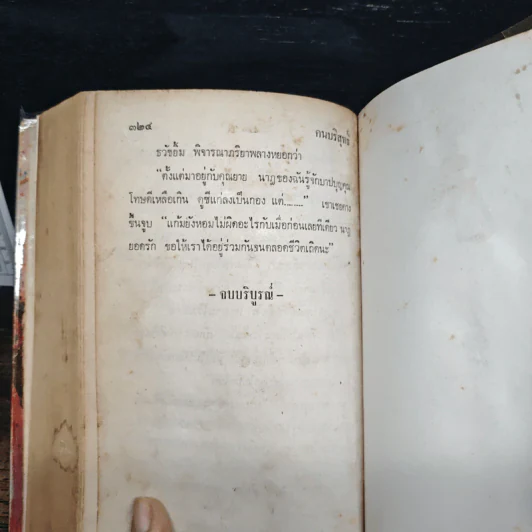 ๓๒๔
คนบริสุทธิ์
ธวัชอิ้ม พิจารณาภริยาพลางหยอกว่า
"ตั้งแต่มาอยู่กับคุณยาย นาฏของฉันรู้จักบาปบุญคุณ
โทษดีเหลือเกิน ดูซีแก่ลงเป็นกอง แต่........" เขาเชยคาง
ขึ้นจูบ "แก้มยังหอมไม่ผิดอะไรกับเมื่อก่อนเลยทีเดียว นาฏ
ยอดรัก ขอให้เราได้อยู่ร่วมกันจนตลอดชีวิตเถิดนะ"
– จบบริบูรณ์ –